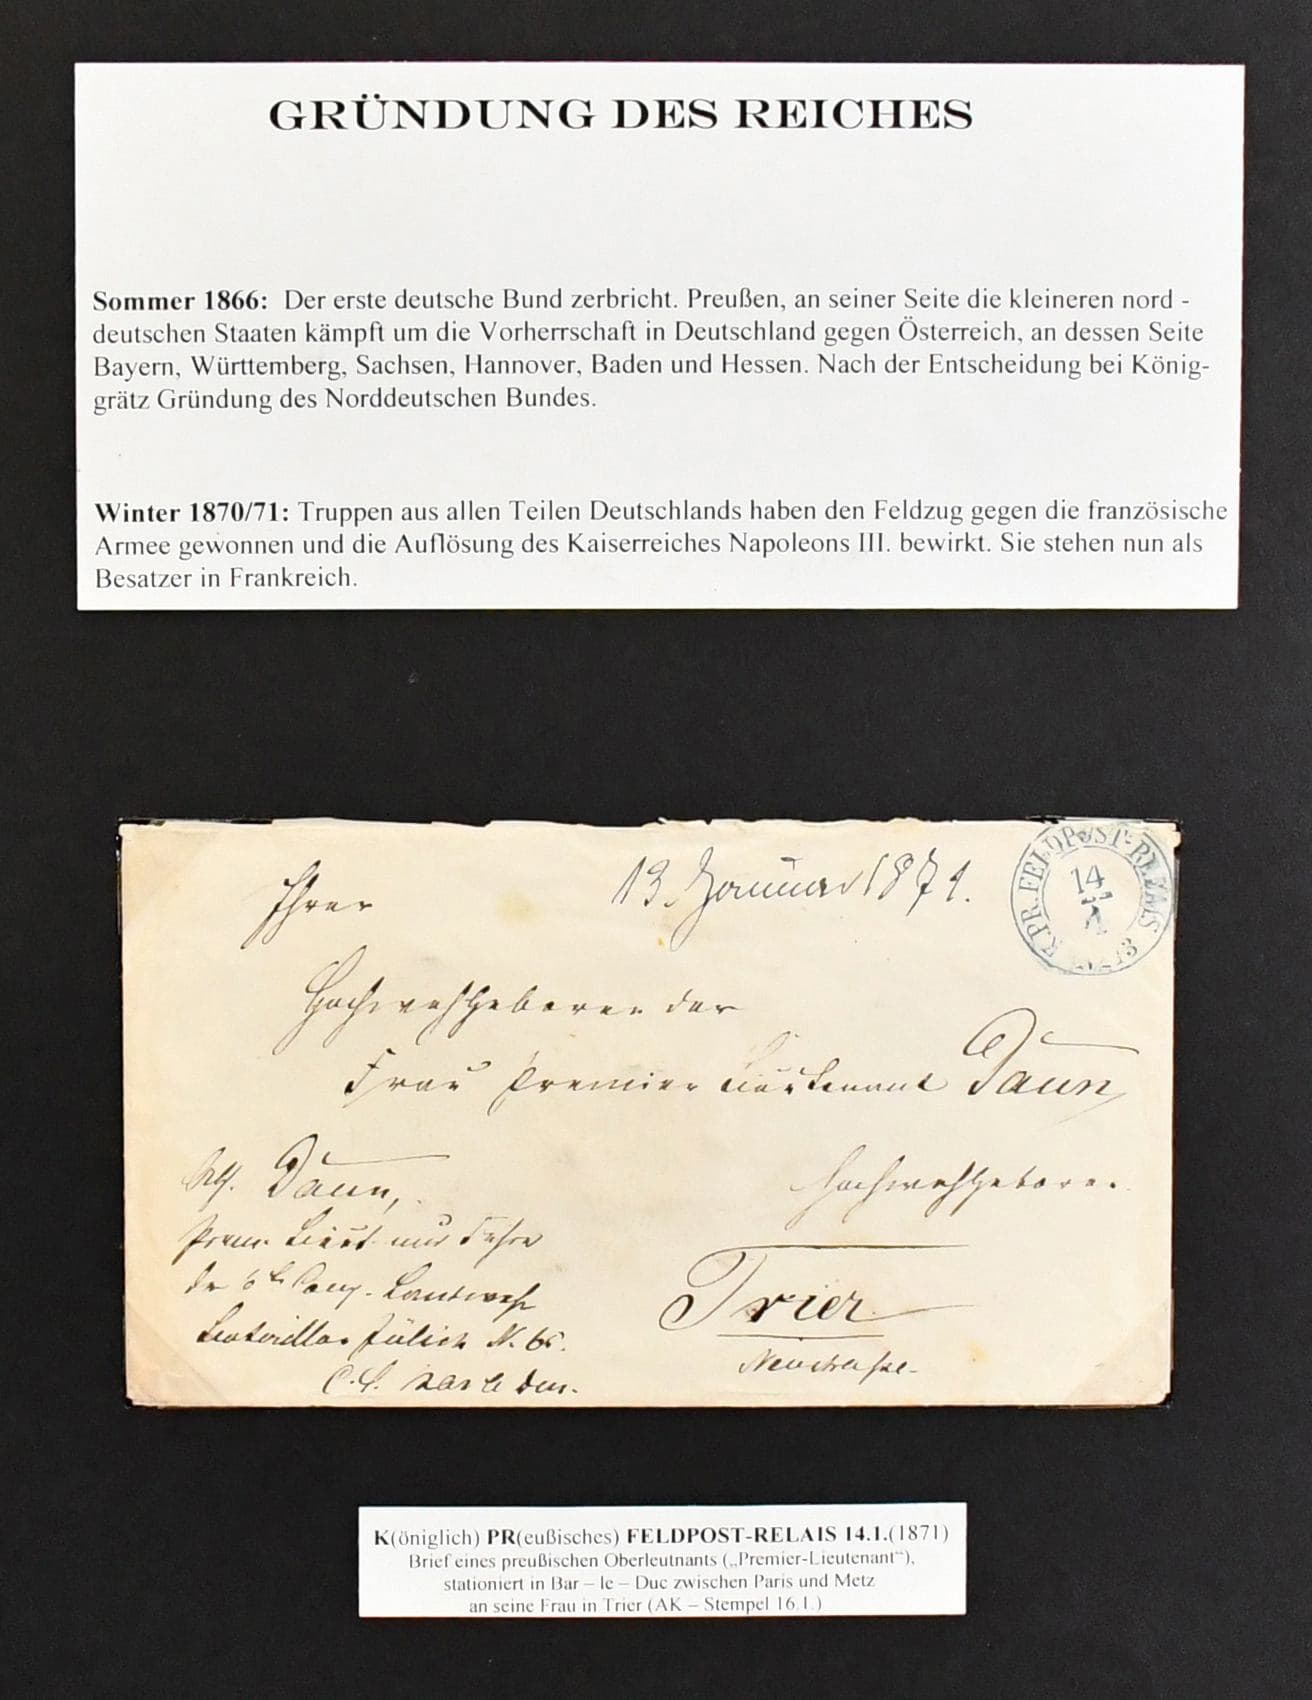 GRÜNDUNG DES REICHES
Sommer 1866: Der erste deutsche Bund zerbricht. Preußen, an seiner Seite die kleineren nord -
deutschen Staaten kämpft um die Vorherrschaft in Deutschland gegen Österreich, an dessen Seite
Bayern, Württemberg, Sachsen, Hannover, Baden und Hessen. Nach der Entscheidung bei König-
grätz Gründung des Norddeutschen Bundes.
Winter 1870/71: Truppen aus allen Teilen Deutschlands haben den Feldzug gegen die französische
Armee gewonnen und die Auflösung des Kaiserreiches Napoleons III. bewirkt. Sie stehen nun als
Besatzer in Frankreich.
K.PR.FELDPOST-RELAIS
14
1
13. Januar 1871.
Ihrer
Hochwohlgeboren der
Frau Premier Lieutenant Daun,
Hochwohlgeboren
Trier
Neustraße.
Daun,
Prem. Lieut. und Führer
der 6. Comp. Landwehr
Bataillon Jülich N. 65.
Bar le Duc.
K(öniglich) PR(eußisches) FELDPOST-RELAIS 14.1.(1871)
Brief eines preußischen Oberleutnants („Premier-Lieutenant“),
stationiert in Bar – le – Duc zwischen Paris und Metz
an seine Frau in Trier (AK – Stempel 16.1.)